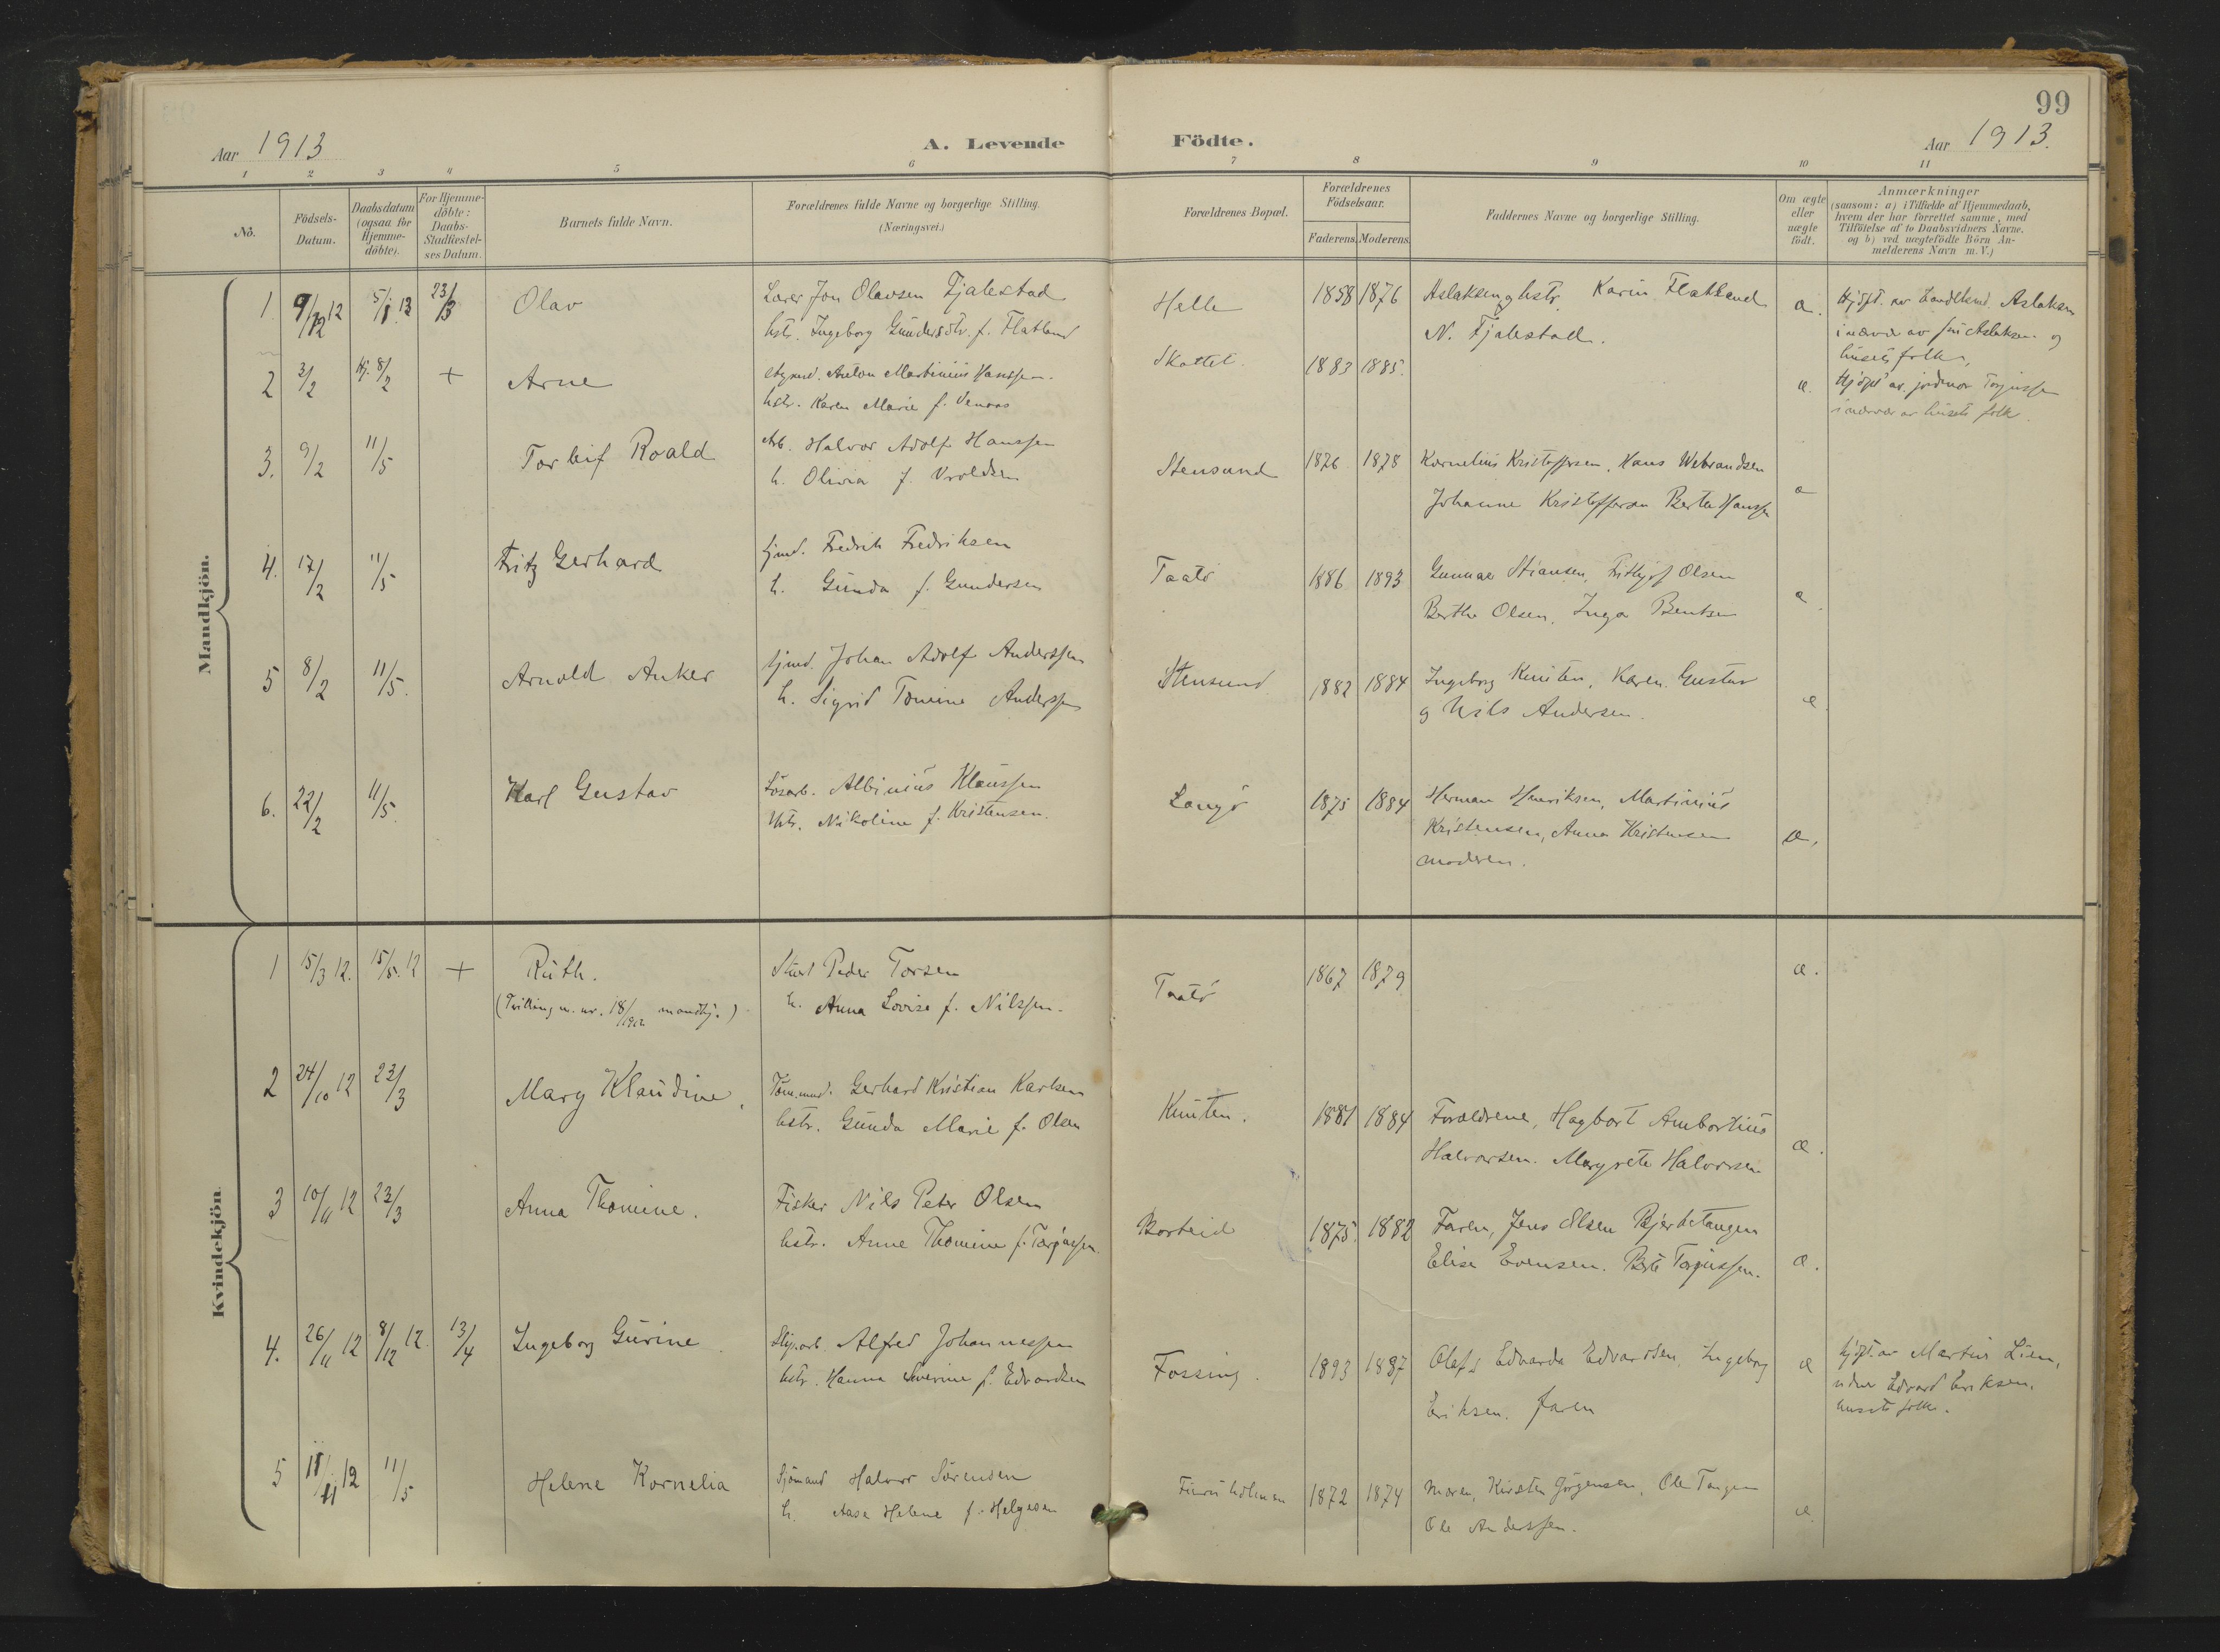 99
Aar 1913
A. Levende Födte.
Aar 1913.
1 2 3 4 5 6 7 8 9 10 11
No.
Födsels-Datum.
Daabsdatum (ogsaa for Hjemme-döbte).
For Hjemme-döbte: Daabs-Stadfæstel-ses Datum.
Barnets fulde Navn.
Forældrenes fulde Navne og borgerlige Stilling. (Næringsvei.)
Forældrenes Bopæl.
Forældrenes Födselsaar.
Faderens. Moderens.
Faddernes Navne og borgerlige Stilling.
Om ægte eller uægte födt.
Anmærkninger
(saasom: a) i Tilfælde af Hjemmedaab,
hvem der har forrettet samme, med
Tilföielse af to Daabsvidners Navne.
og b) ved uægtefödte Börn An-
melderens Navn m.V.)
Mandkjön.
1. 9/12 12 5/1 13 23/3 Olav Lærer Jon Olavsen Fjalestad Helle 1858 1876 Aslaksen og hstr Karin Flatland æ.
hstr. Ingeborg Gundersdtr. f. Flatland N. Fjalestad.
Hjdpt. av Aslaksen
i nærvær av Aslaksen og
husets folk.
2 3/2 Hj. 8/2 + Arne Anton Martinius Hanssen. Skottet 1883 1885. æ.
hstr. Karen Marie f.
Hjdpt av jordmor Torjussen
i nærvær av husets folk.
3. 9/2 11/5 Torleif Roald Arb. Halvor Adolf Hanssen Stensund 1876 1878 Kornelius Kristoffersen, Hans Webrandsen æ
h. Olivia f. Vroldsen Johanne Kristoffersen Berte Hanssen
4. 17/2 11/5 Fritz Gerhard sjmd. Fredrik Fredriksen Taatö 1886 1893 Gunnar Stiansen, Frithjof Olsen æ.
h. Gunda f. Gundersen Berthe Olsen, Inga Bentsen
5 8/2 11/5. Arnold Anker sjmd. Johan Adolf Anderssen Stensund 1882 1884 Ingeborg Knuten, Karen, Gustav æ.
h. Sigrid Tomine Anderssen og Nils Andersen.
6. 22/2 11/5. Karl Gustav Lösarb. Albinius Klaussen Langö 1875 1884 Herman Henriksen, Martinius æ.
hstr. Nikoline f. Kristensen. Kristensen, Anna Kristensen
moderen.
Kvindekjön.
1 15/3 12. 15/5. 12 + Ruth. Peder Torsen Taatö 1867 1879 æ.
(Tvilling m. nr. 18/1912 mandkj.) h. Anna Lovise f. Nilssen.
2 24/10 12 23/3 Mary Klaudine. Töm.mnd. Gerhard Kristian Karlsen Knuten. 1881 1884 Forældrene, Hagbart Ambortius æ.
hstr. Gunda Marie f. Olsen Halvorsen. Margrete Halvorsen
3 10/11 12 23/3 Anna Thomine. Fisker Nils Peter Olsen Borteid 1875. 1882 Faren, Jens Olsen Bjerketangen æ.
hstr. Anne Thomine f. Torjussen. Elise Evensen. Berte Torjussen.
4. 26/11 12 8/12 12 13/4 Ingeborg Gurine Slip.arb. Alfred Johannessen Fossing. 1893 1887 Olaf & Edvarda Edvardsen, Ingeborg æ
hstr. Hanna Severine f. Edvardsen Eriksen. faren
hjdpt. av Martin Lien,
vidner Edvard Eriksen,
husets folk.
5 11/11 12 11/5 Helene Kornelia Sjömand Halvor Sörensen Furuholmen 1872 1874 Moren, Kirsten Jörgensen, Ole Tangen æ.
h. Aasa Helene f. Helgesen Ole Anderssen.